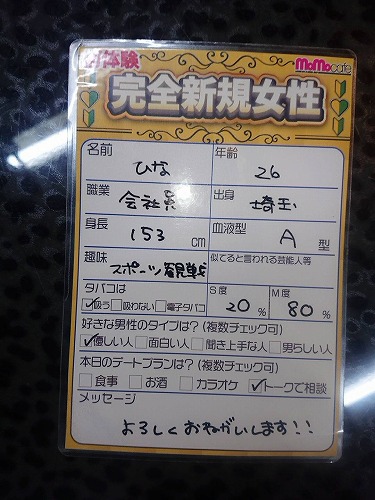 初体験
MoMocafe
完全新規女性
名前 ひな 年齢 26
職業 会社員 出身 埼玉
身長 153 cm 血液型 A 型
趣味 スポーツ観戦 似てると言われる芸能人等
タバコは S度 M度
吸う 吸わない 電子タバコ 20 % 80 %
好きな男性のタイプは?(複数チェック可)
優しい人 面白い人 聞き上手な人 男らしい人
本日のデートプランは?(複数チェック可)
食事 お酒 カラオケ トークで相談
メッセージ
よろしくおねがいします!!